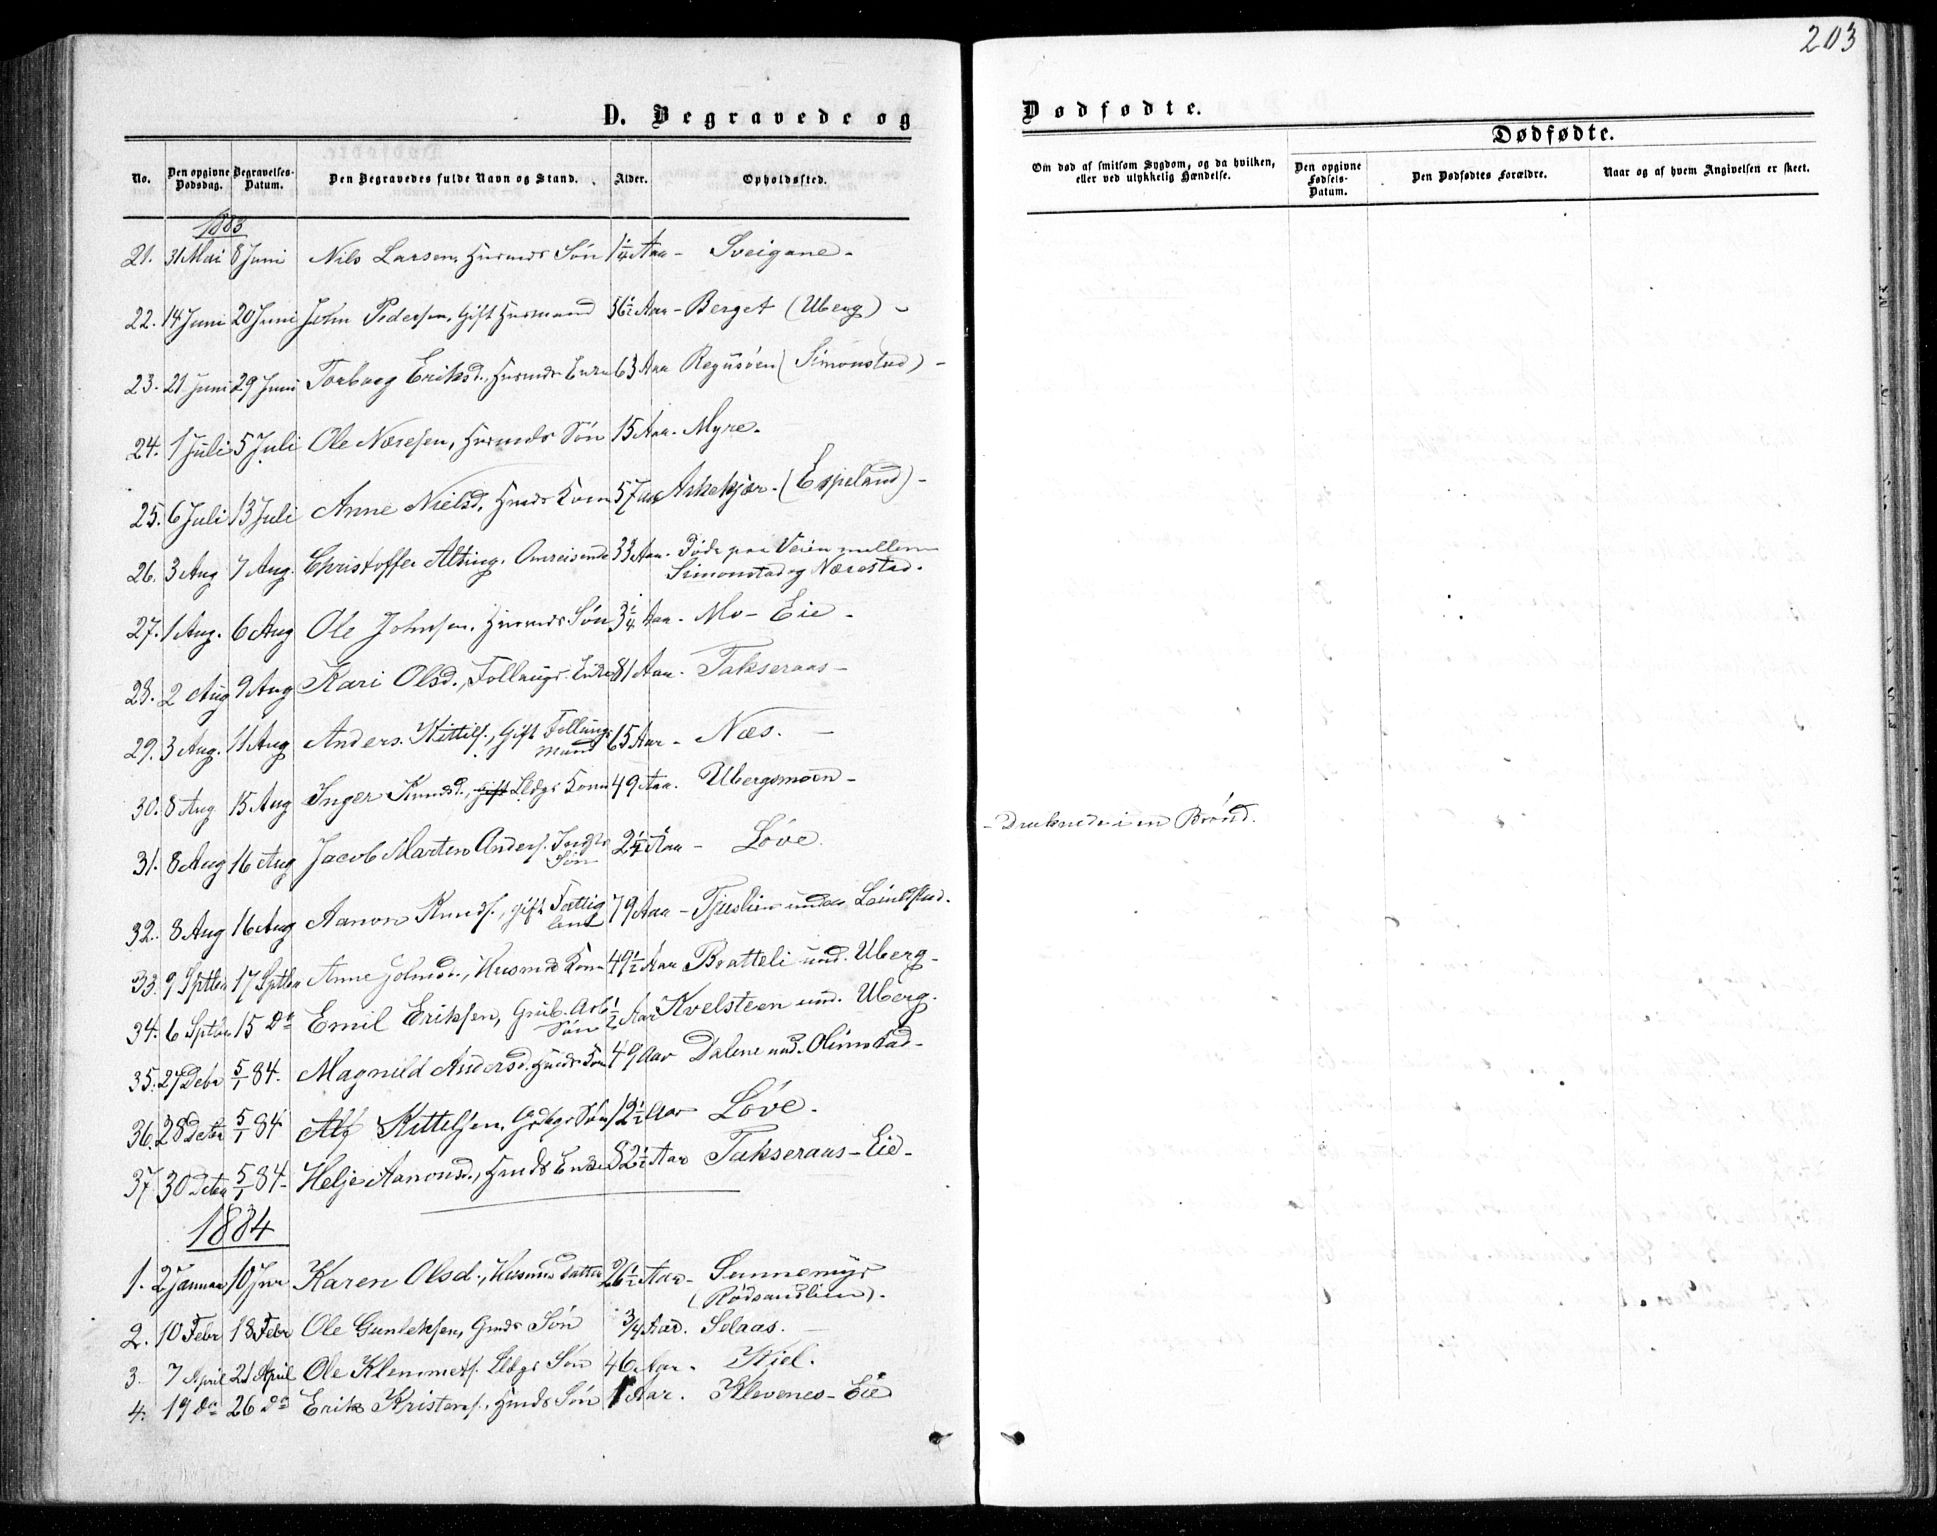 203
D. Begravede og Dødfødte.
Dødfødte.
No. Den opgivne Dødsdag. Begravelses-Datum. Den Begravedes fulde Navn og Stand. Alder. Opholdssted. Om død af smitsom Sygdom, og da hvilken, eller ved ulykkelig Hændelse. Den opgivne Fødsels-Datum. Den Dødfødtes Forældre. Naar og af hvem Angivelsen er skeet.
1883
21. 31 Mai 8 Juni Nils Larsen, Husmds Søn 1 1/4 Aar - Sveigane -
22. 14 Juni 20 Juni John Pedersen, Gift Husmand 56 1/2 Aar - Berget (Uberg) -
23. 21 Juni 29 Juni Torborg Eriksd., Husmds Enke 63 Aar (Simonstad) -
24. 1 Juli 5 Juli Ole Næsesen, Husmds Søn 15 Aar. Myre.
25. 6 Juli 13 Juli Anne Nielsd. Hmds Kone 57 Aar Askekjær - (Espeland) -
26. 3 Aug 7 Aug. Christoffer Alting. Omreisende 33 Aar. Døde paa Veien mellem
Simonstad og Nærestad.
27. 1 Aug. 6 Aug Ole Johnsen, Husmds Søn 3 1/4 Aar. Mo - Eie -
28. 2 Aug 9 Aug Kari Olsd., Follaugs Enke 81 Aar. Takseraas -
29. 3 Aug. 11 Aug Anders Kittils., Gift Follaugs
mand 65 Aar - Næs. -
30. 8 Aug 15 Aug Inger Knudsd., gift Lldgs Kone 49 Aar. Ubergsmoen -
31. 8 Aug 16 Aug Jacob Marten Anders.
Søn 2 1/4 Aar - Løve. - Druknede i en Brønd.
32. 8 Aug 16 Aug Aanon Knuds., gift Fattig
lem 79 Aar - under
33. 9 Sptbr 17 Sptbr Anne Johnsd., Husmds Kone 49 1/2 Aar Bratteli und. Uberg -
34. 6 Sptbr 15 Do Emil Eriksen, Grub. Arb.
Søn 1/2 Aar Kvelsteen und. Uberg.
35. 27 Debr 5/1 84. Magnild Andersd. Hmds Kone 49 Aar Dalene und. Olimstad -
36. 28 Debr 5/1 84 Alf Kittelsen, Grdbgs Søn 12 1/2 Aar Løve.
37 30 Debr 5/1 84 - Helje Aanonsd., Hmds Enke 82 1/2 Aar Takseraas - Eie -
1884
1. 2 Januar 10 Jnr Karen Olsd., Husmds Datter 26 1/2 Aar - Sunnemyr
(Rødsandlien).
2. 10 Febr 18 Febr Ole Gunleksen, Gmds Søn 3/4 Aar. Selaas. -
3. 7 April 21 April Ole Klemmets. Lldgs Søn 46 Aar. Kiel.
4. 19 do 26 do Erik Kristens., Hmds Søn 1 Aar. Klevenes - Eie